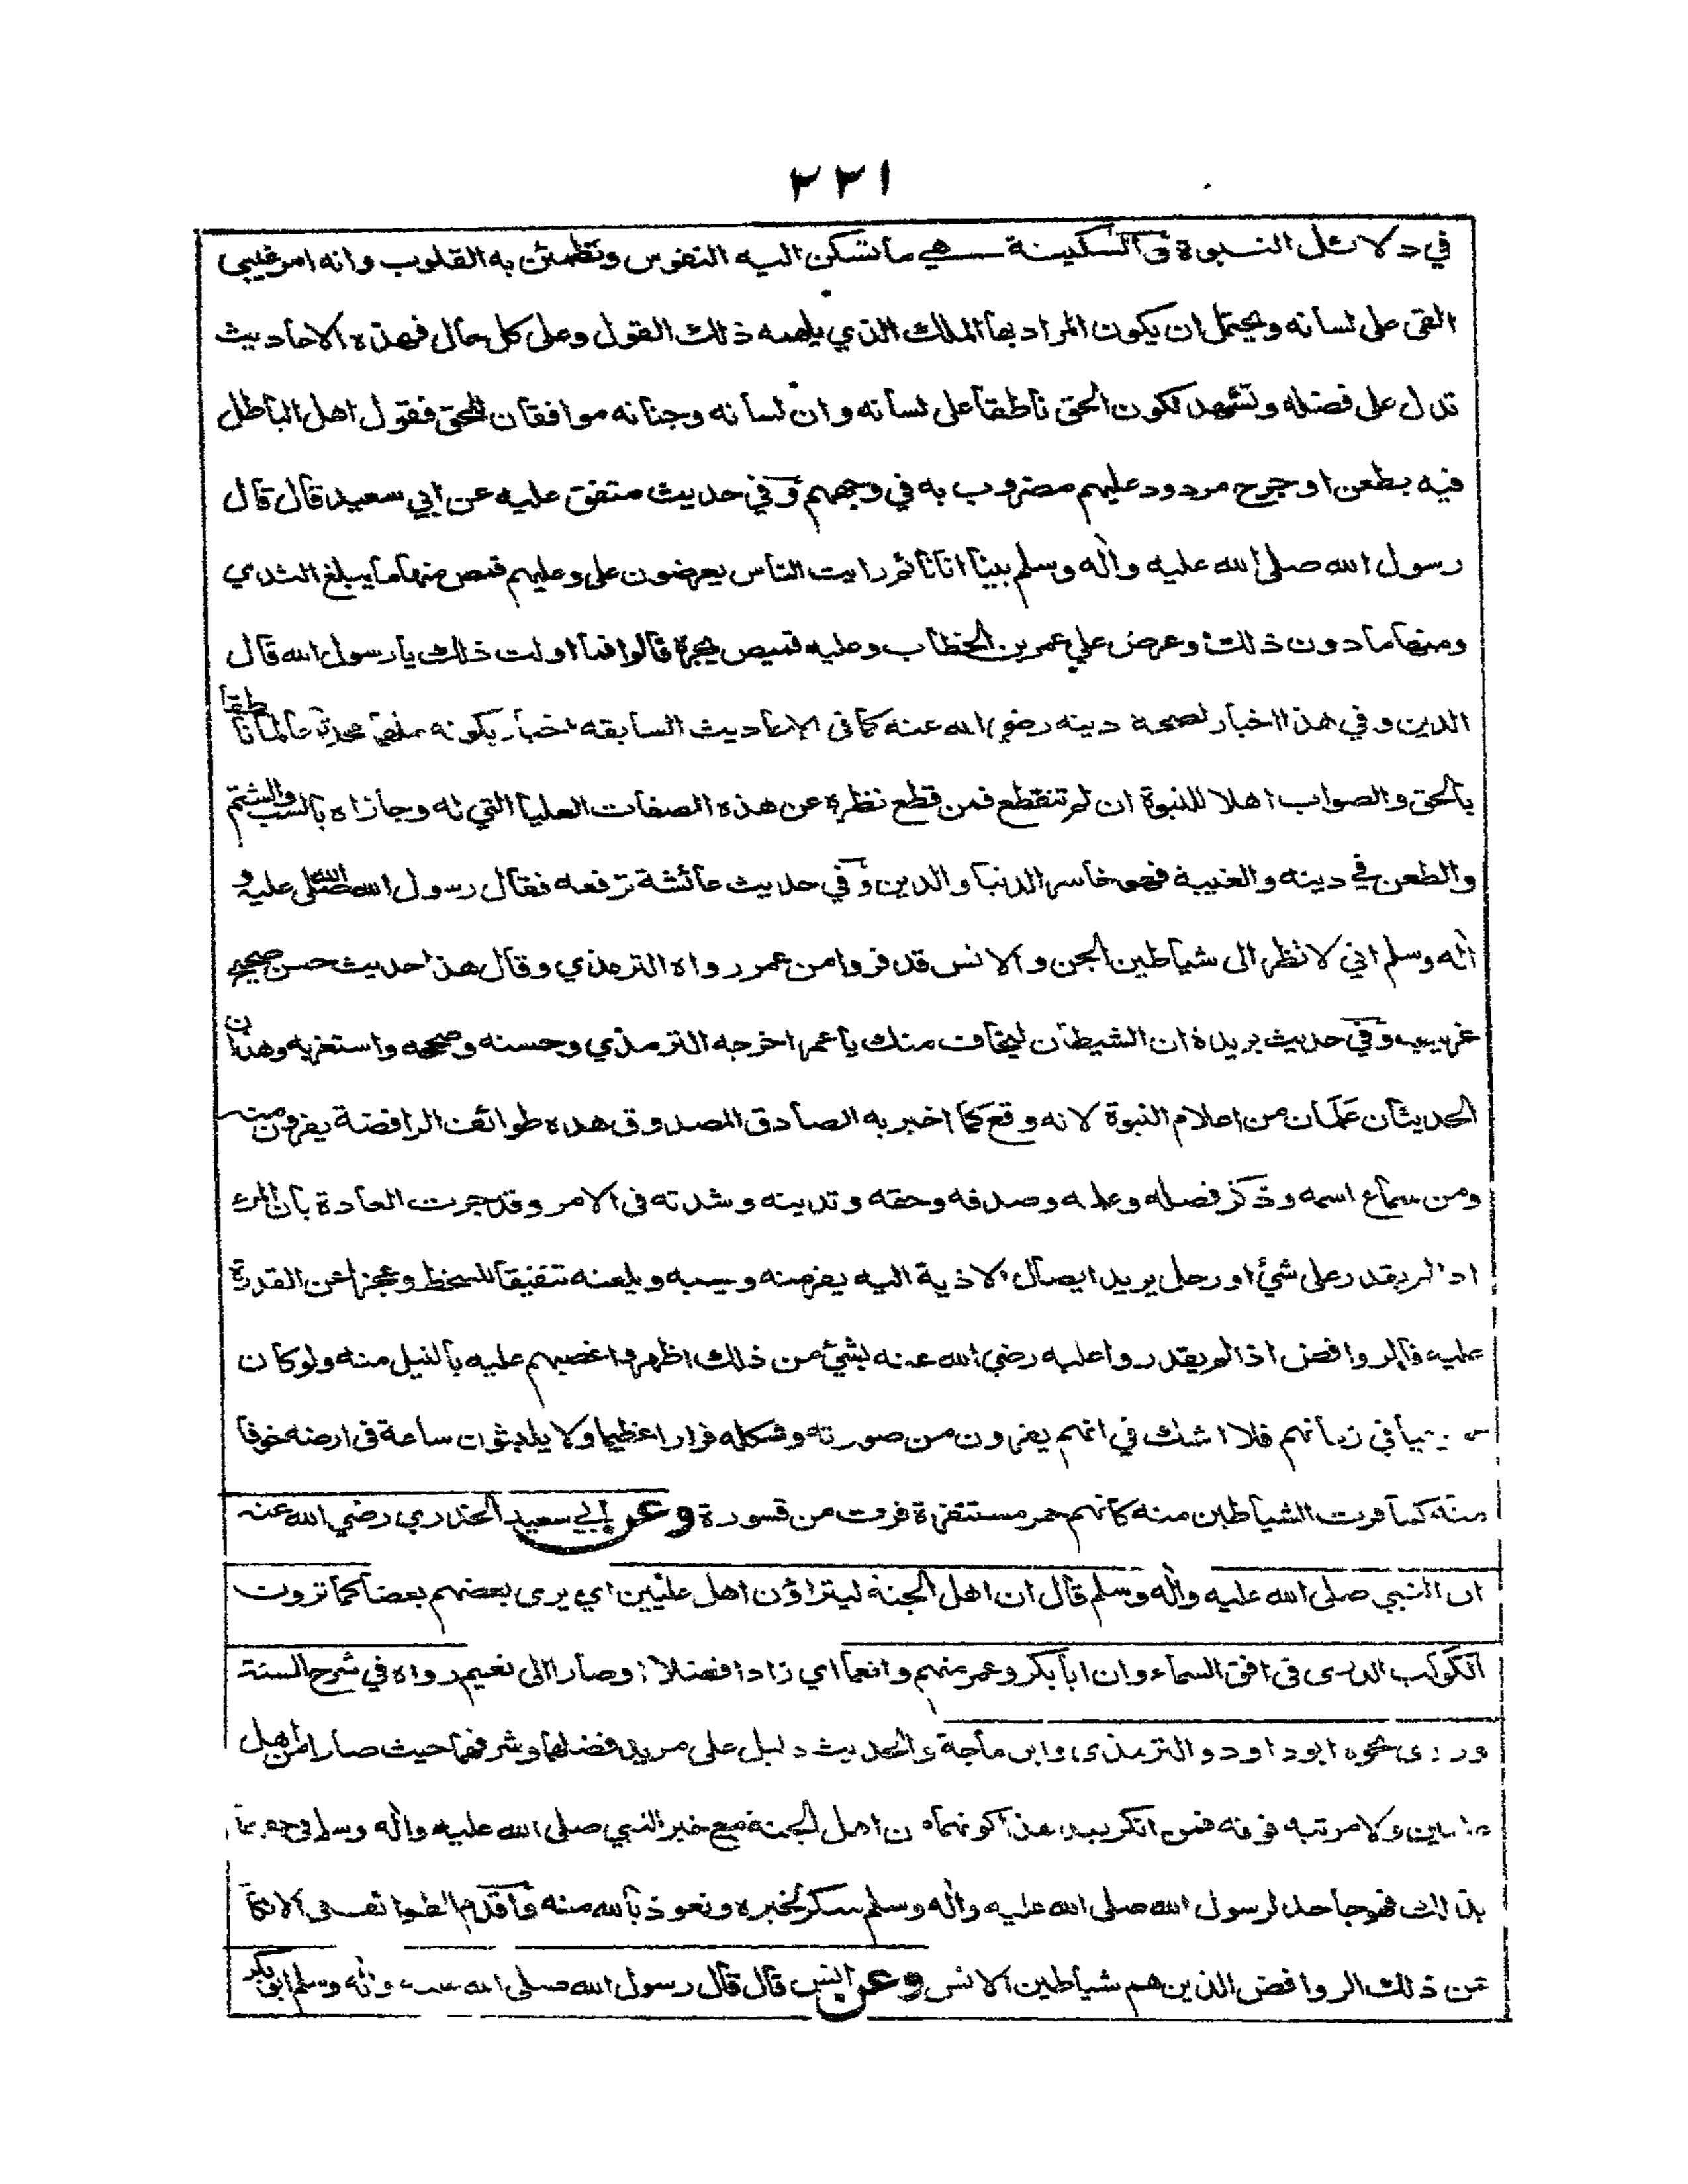 ٢٢١
في دلائل النبوة والسكينة هي ما تسكن اليه النفوس وتطمئن به القلوب وانه امر غيبي
القى على لسانه ويحتمل ان يكون المراد بها الملك الذي يلهمه ذلك القول وعلى كل حال فهذه الاحاديث
تدل على فضله وتشهد لكون الحق ناطقا على لسانه وان لسانه وجنانه موافقان للحق فقول اهل الباطل
فيه بطعن او جرح مردود عليهم مضروب به في وجههم وفي حديث متفق عليه عن ابي سعيد قال قال
رسول الله صلى الله عليه واله وسلم بينا انا نائم رايت الناس يعرضون علي وعليهم قمص منها ما يبلغ الثدي
ومنها ما دون ذلك وعرض علي عمر بن الخطاب وعليه قميص يجره قالوا فما اولت ذلك يا رسول الله قال
الدين وفي هذا اخبار لصحة دينه رضي الله عنه كما في الاحاديث السابقه اخبار بكونه ملهما محدثا عالما ناطقا
بالحق والصواب اهلا للنبوة ان لم تنقطع فمن قطع نظره عن هذه الصفات العليا التي له وجازاه بالسب والشتم
والطعن في دينه والغيبة فهو خاسر الدنيا والدين وفي حديث عائشة ترفعه فقال رسول الله صلى الله عليه و
اله وسلم اني لانظر الى شياطين الجن والانس قد فروا من عمر رواه الترمذي وقال هذا حديث حسن صحيح
غريب وفي حديث بريدة ان الشيطان ليخاف منك يا عمر اخرجه الترمذي وحسنه وصححه واستغربه وهذان
الحديثان علمان من اعلام النبوة لانه وقع كما اخبر به الصادق المصدوق هذه طوائف الرافضة يفرون منه
ومن سماع اسمه وذكر فضله وعلمه وصدقه وحقه وتدينه وشدته في الامر وقد جرت العادة بان المرء
اذا لم يقدر على شئ او رجل يريد ايصال الاذية اليه يفر منه ويسبه ويلعنه تنفيقا للسخط وعجزا عن القدرة
عليه فالروافض اذا لم يقدروا عليه رضي الله عنه بشئ من ذلك اظهروا غضبهم عليه بالنيل منه ولو كان
في زمانهم فلا اشك في انهم يفرون من صورته وشكله فرارا عظيما ولا يلبثون ساعة في ارضه خوفا
منه كما فرت الشياطين منه كانهم حمر مستنفرة فرت من قسورة وعن ابي سعيد الخدري رضي الله عنه
ان النبي صلى الله عليه واله وسلم قال ان اهل الجنة ليتراؤن اهل عليين اي يرى بعضهم بعضا كما ترون
الكوكب الدرى في افق السماء وان ابا بكر وعمر منهم وانعما اي زادا فضلا او صارا الى نعيم رواه في شرح السنة
وروى نحوه ابو داود والترمذى وابن ماجة والحديث دليل على مزيد فضلهما وشرفهما حيث صارا من اهل
عليين ولا مرتبه فوقه فمن انكر بعد هذا كونهما من اهل الجنة مع خبر النبي صلى الله عليه واله وسلم في حقهما
بذلك فهو جاحد لرسول الله صلى الله عليه واله وسلم منكر لخبره ونعوذ بالله منه واقدم الطوائف في الانكا
عن ذلك الروافض الذين هم شياطين الانس وعن انس قال قال رسول الله صلى الله عليه واله وسلم ابو بكر